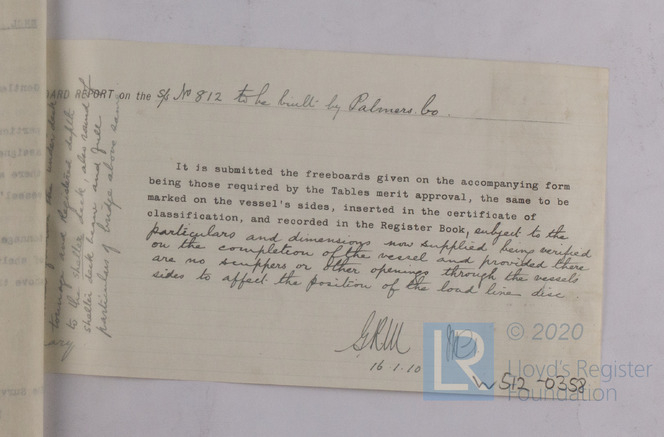 ARD REPORT on the S/S No 812 to be built by Palmers. Co.
It is submitted the freeboards given on the accompanying form
being those required by the Tables merit approval, the same to be
marked on the vessel's sides, inserted in the certificate of
classification, and recorded in the Register Book, subject to the
particulars and dimensions now supplied being verified
on the completion of the vessel and provided there
are no scuppers or other openings through the vessels
sides to affect the position of the load line disc.
GRM
16.1.10
W512-0358
tonnage and Registered depth
to the shelter deck, also round of
shelter deck beam and full
particulars of bridge above same
© 2020
LR
Lloyd's Register
Foundation